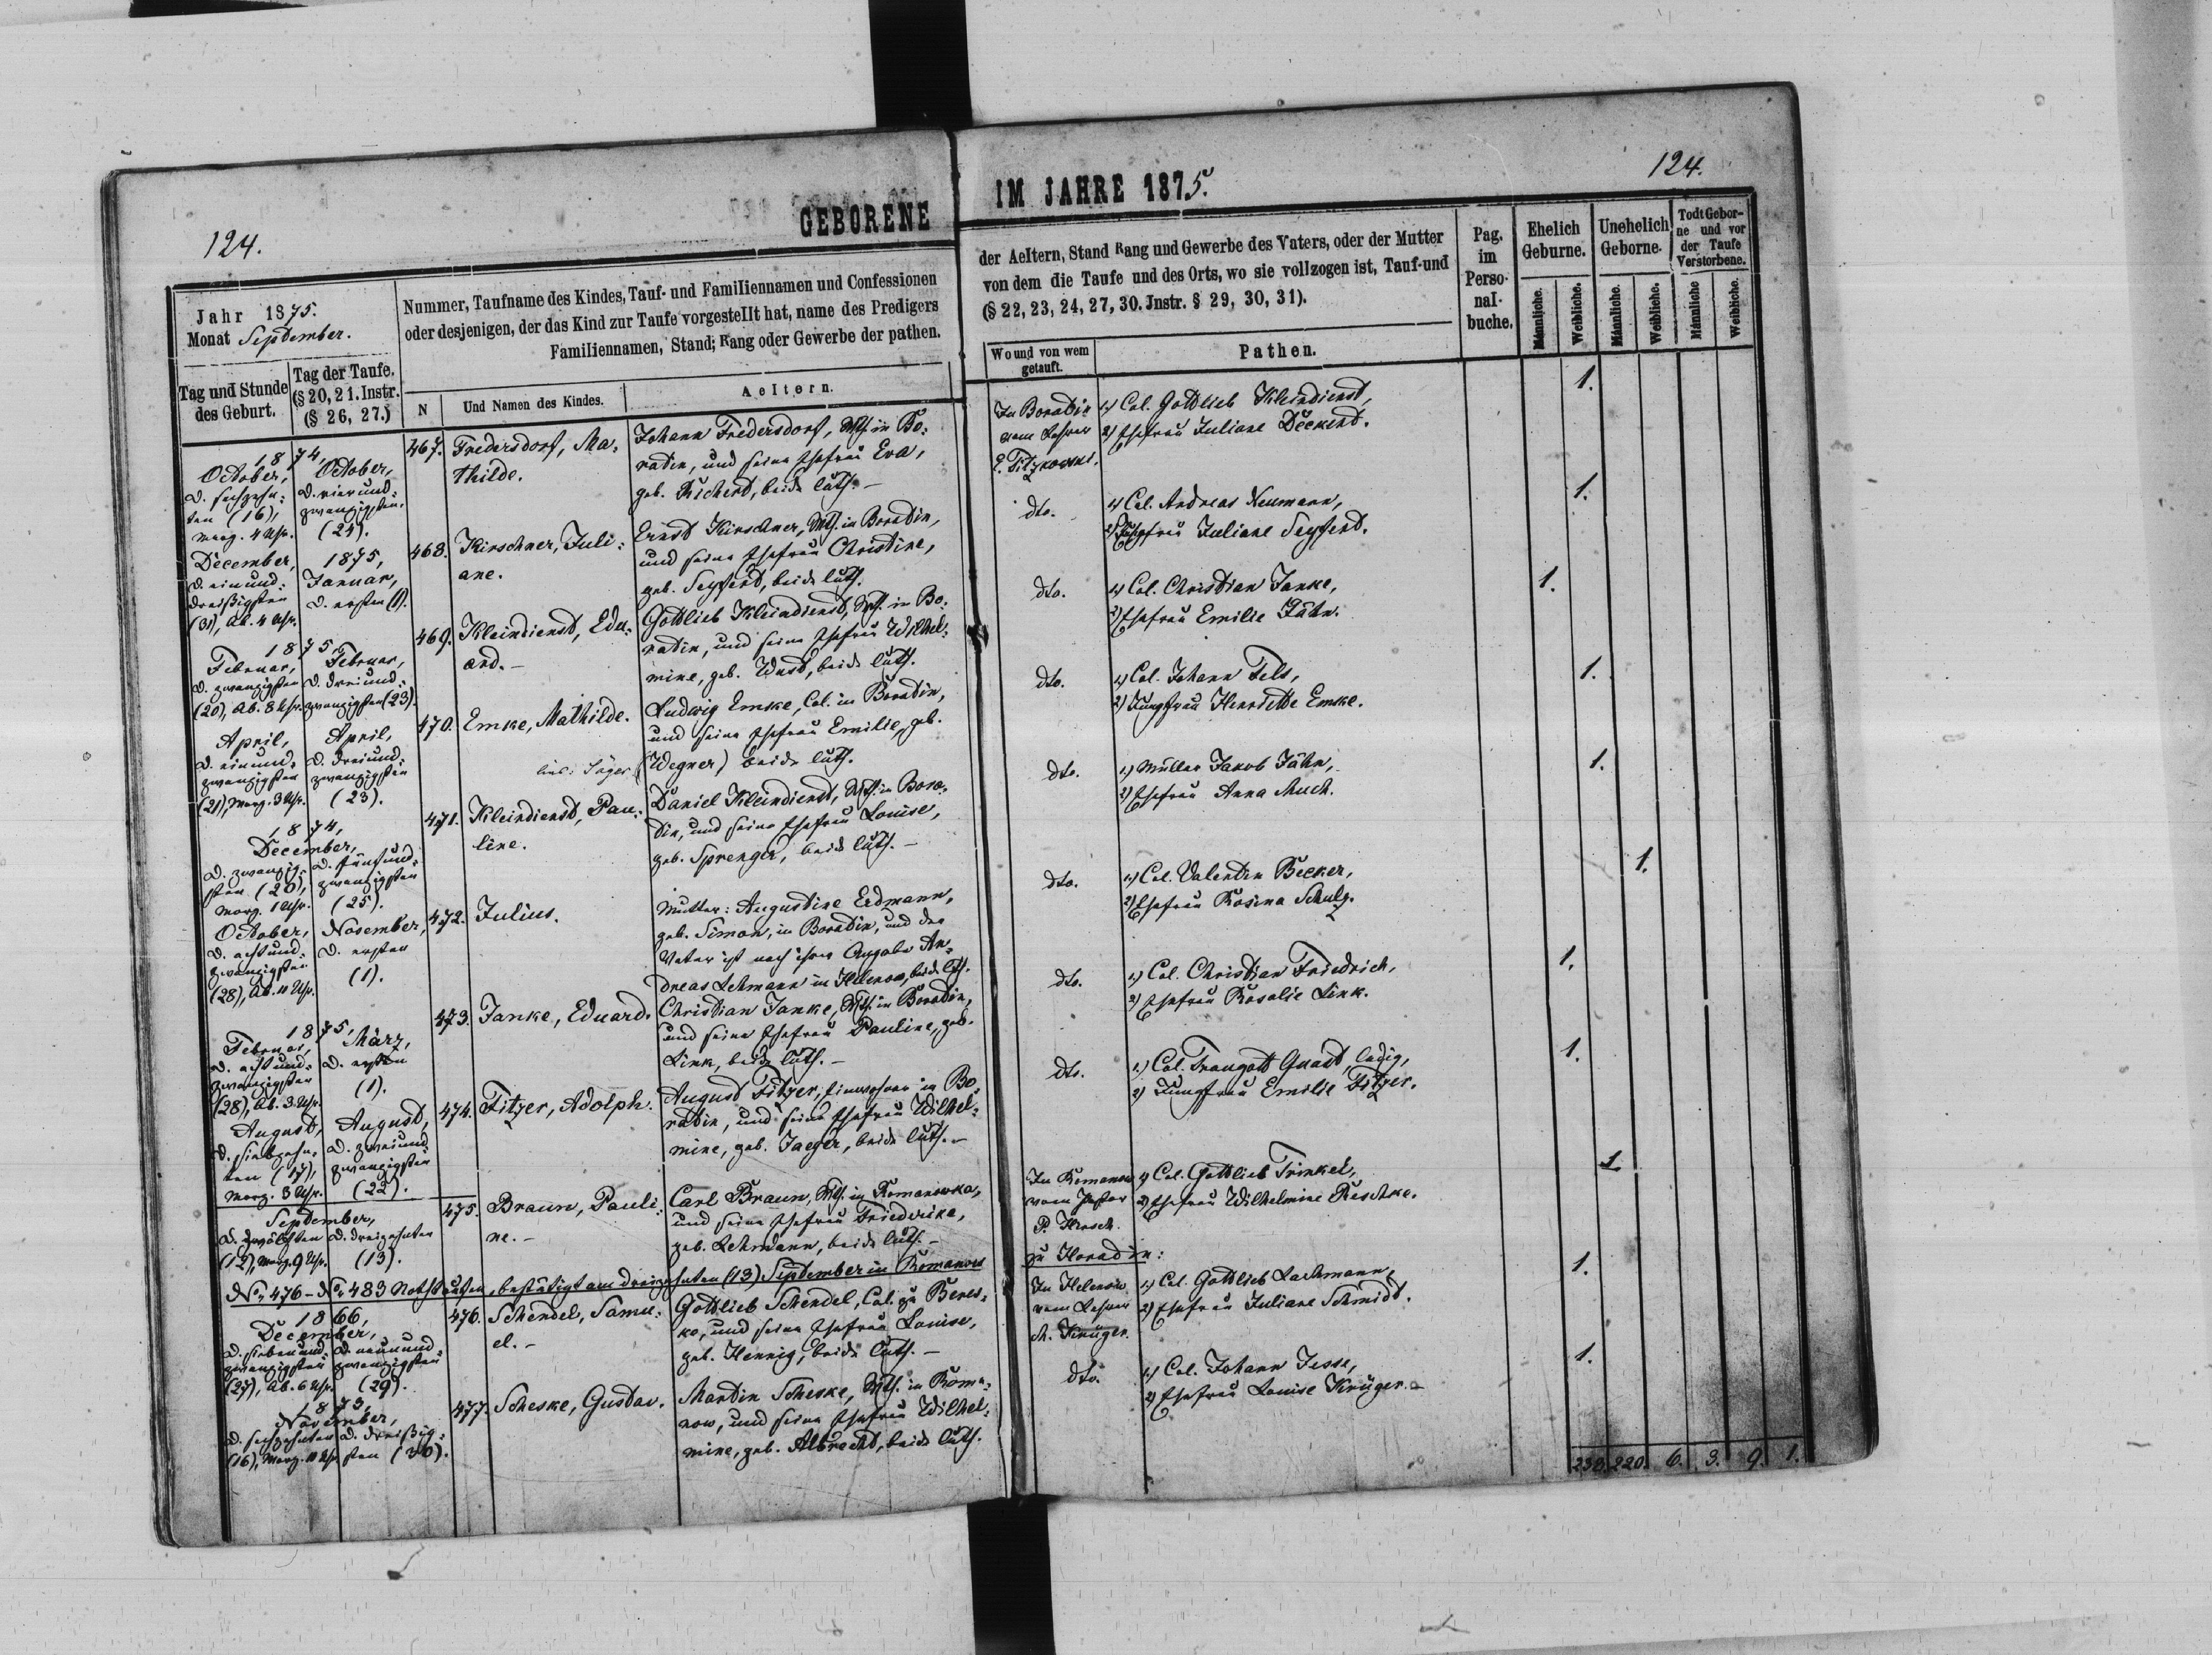 124.
GEBORENE
Jahr 1875.
Monat September.
Nummer, Taufname des Kindes, Tauf- und Familiennamen und Confessionen
oder desjenigen, der das Kind zur Taufe vorgestellt hat, name des Predigers
Familiennamen, Stand; Rang oder Gewerbe der pathen.
Tag und Stunde
des Geburt.
Tag der Taufe.
(§ 20, 21. Instr.
(§ 26, 27.)
N
Und Namen des Kindes.
Aeltern.
1874,
October,
d. sechzehn-
ten (16),
morg. 4 Uhr.
October,
d. vierund-
zwanzigsten.
(24).
467.
Fredersdorf, Ma-
thilde.
Johann Fredersdorf, Wth. in Bo-
ratin, und seine Ehefrau Eva,
geb. Richert, beide luth. –
December,
d. einund-
dreißigsten
(31), Ab. 4 Uhr.
1875,
Januar,
d. ersten (1).
468.
Kirschner, Juli-
ane.
Ernst Kirschner, Wth. in Boratin,
und seine Ehefrau Christine,
geb. Seyferd, beide luth.
1875,
Februar,
d. zwanzigsten
(20), Ab. 8 Uhr.
Februar,
d. dreiund-
zwanzigsten (23).
469.
Kleindienst, Edu-
ard. –
Gottlieb Kleindienst, Wth. in Bo-
ratin, und seine Ehefrau Wilhel-
mine, geb. Wust, beide luth.
April,
d. einund-
zwanzigsten
(21), Morg. 3 Uhr.
April,
d. dreiund-
zwanzigsten
(23).
470.
Emke, Mathilde.
Ludwig Emke, Col. in Boratin,
und seine Ehefrau Emilie, geb.
(Wegner) beide luth.
1874,
December,
d. zwanzig-
sten (20),
Morg. 1 Uhr.
d. fünfund-
zwanzigsten
(25).
471.
Kleindienst, Pau-
line.
Daniel Kleindienst, Wth. in Bora-
tin, und seine Ehefrau Louise,
geb. Sprenger, beide luth. –
October,
d. achtund-
zwanzigsten
(28), Ab. 11 Uhr.
November,
d. ersten
(1).
472.
Julius.
Mutter: Augustine Erdmann,
geb. Simon, in Boratin, und der
Vater ist nach ihrer Angabe An-
dreas Lehmann in Helenow, beide luth.
1875,
Februar,
d. achtund-
zwanzigsten
(28), Ab. 3 Uhr.
März,
d. ersten
(1).
473.
Janke, Eduard.
Christian Janke, Wth. in Boratin,
und seine Ehefrau Pauline, geb.
Link, beide luth. –
August,
d. siebzehn-
ten (17),
Morg. 3 Uhr.
August,
d. zweiund-
zwanzigsten
(22).
474.
Fitzer, Adolph.
August Fitzer, Einwohner in Bo-
ratin, und seine Ehefrau Wilhel-
mine, geb. Jaeger, beide luth. –
September,
d. zwölften
(12), Morg. 9 Uhr.
d. dreizehnten
(13).
475.
Braun, Pauli-
ne. –
Carl Braun, Wth. in Romanowka,
und seine Ehefrau Friedricke,
geb. Lehmann, beide luth. –
No. 476 – No. 483 Nothtaufen, bestätigt am dreizehnten (13) September in Romanow
1866,
December,
d. siebenund-
zwanzigsten
(27), Ab. 6 Uhr.
d. neunund-
zwanzigsten
(29).
476.
Schendel, Samu-
el. –
Gottlieb Schendel, Col. zu Beres-
ko, und seine Ehefrau Louise,
geb. Hennig, beide luth. –
1873,
November,
d. sechzehnten
(16), Morg. 10 Uhr.
d. dreißig-
sten (30).
477.
Scheske, Gustav.
Martin Scheske, Wth. in Roma-
now, und seine Ehefrau Wilhel-
mine, geb. Albrecht, beide luth.
124.
IM JAHRE 1875.
der Aeltern, Stand Rang und Gewerbe des Vaters, oder der Mutter
von dem die Taufe und des Orts, wo sie vollzogen ist, Tauf-und
(§ 22, 23, 24, 27, 30. Jnstr. § 29, 30, 31).
Wo und von wem
getauft.
Pathen.
Pag.
im
Perso-
nal-
buche.
Ehelich
Geburne.
Unehelich
Geborne.
Todt Gebor-
ne und vor
der Taufe
Verstorbene.
Männliche.
Weibliche.
Männliche.
Weibliche.
Männliche
Weibliche.
In Boratin
vom Lehrer
E. Fitzkowski.
1.) Col. Gottlieb Kleindienst,
2) Ehefrau Juliane Deckert.
1.
dto.
1.) Col. Andreas Neumann,
2) Jungfrau Juliane Seyferd.
1.
dto.
1.) Col. Christian Janke,
2) Ehefrau Emilie Jähn.
1.
dto.
1.) Col. Johann Fels,
2) Jungfrau Henriette Emke.
1.
dto.
1.) Müller Jakob Jähn,
2) Ehefrau Anna Much.
1.
dto.
1.) Col. Valentin Becker,
2) Ehefrau Rosina Schulz.
1.
dto.
1.) Col. Christian Friedrich,
2) Ehefrau Rosalie Link.
1.
dto.
1.) Col. Traugott Quast, ledig,
2) Jungfrau Emilie Fitzer.
1.
In Romanow
vom Pastor
P. Kerm
1) Col. Gottlieb Trinkel,
2) Ehefrau Wilhelmine Reschke.
1.
In Helenow
vom Lehrer
Krüger.
1.) Col. Gottlieb Lachmann,
2) Ehefrau Juliane Schmidt.
1.
dto.
1.) Col. Johann Jesse,
2) Ehefrau Louise Krüger. –
1.
238. 220. 6. 3. 9. 1.